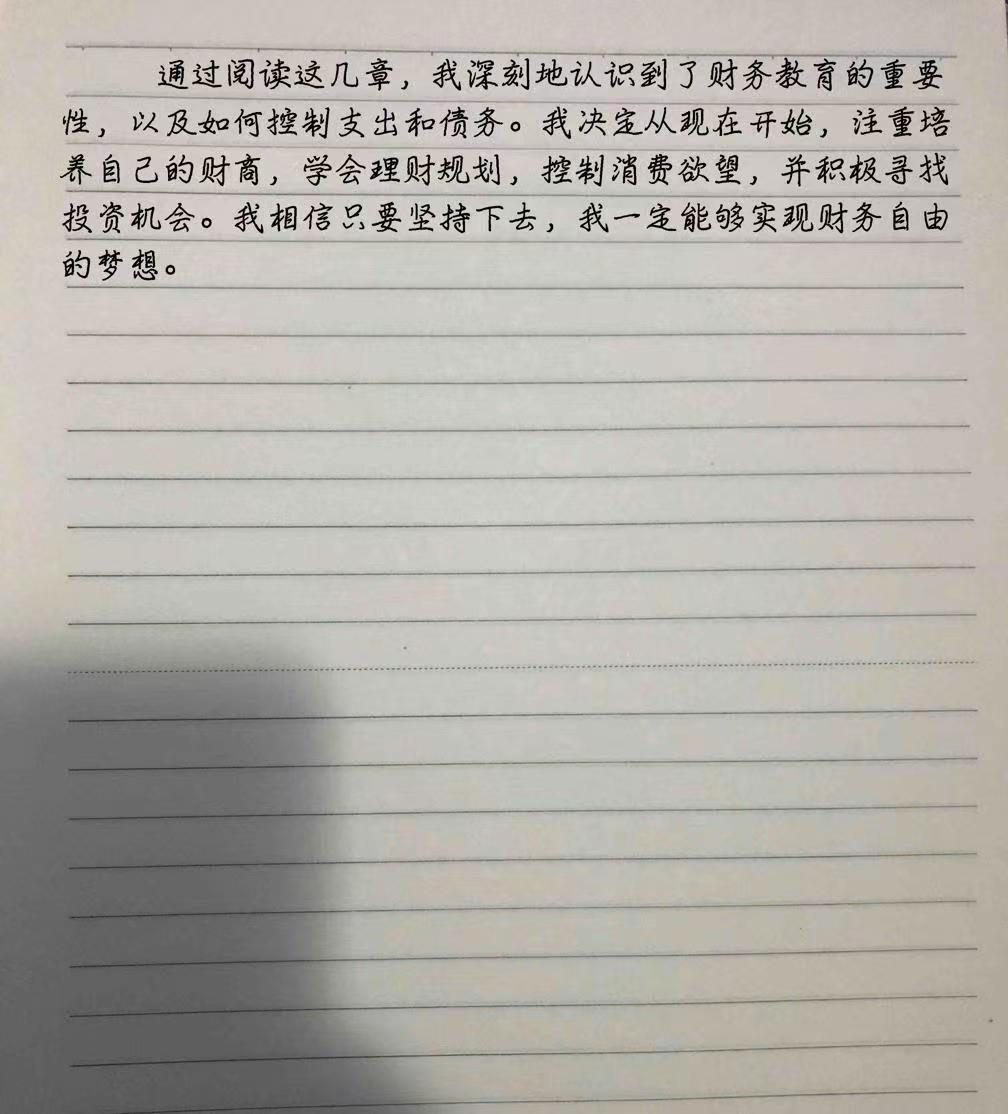 通过阅读这几章，我深刻地认识到了财务教育的重要
性，以及如何控制支出和债务。我决定从现在开始，注重培
养自己的财商，学会理财规划，控制消费欲望，并积极寻找
投资机会。我相信只要坚持下去，我一定能够实现财务自由
的梦想。